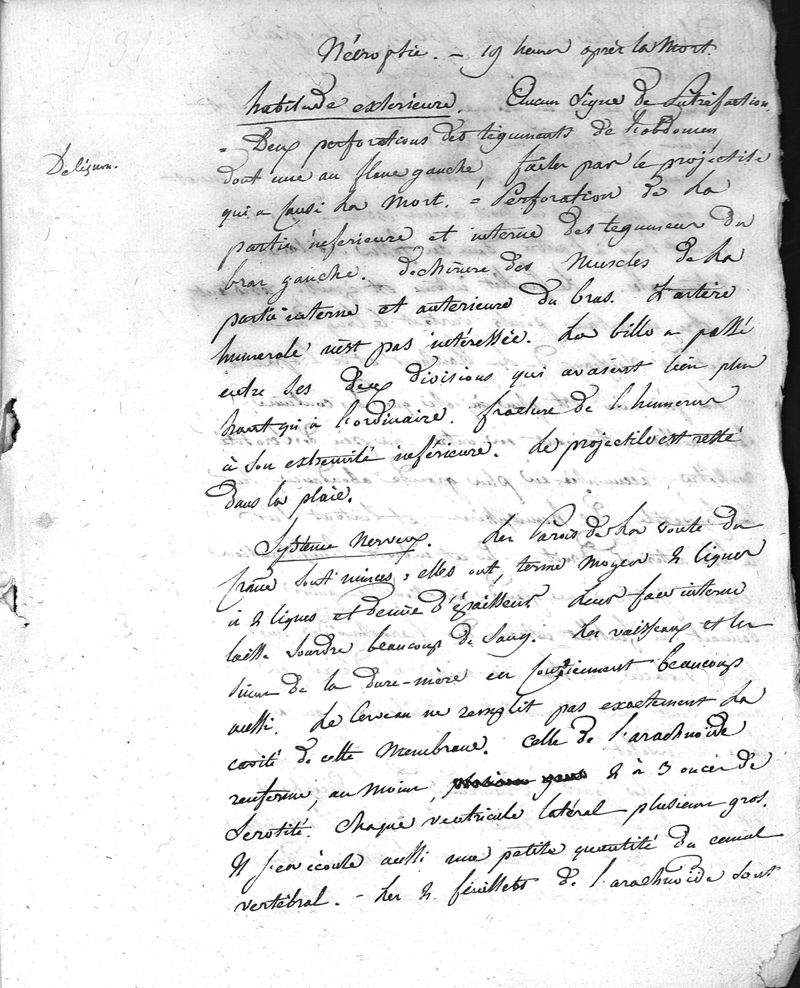 Nécropsie. - 19 heures après la Mort.
habitude exterieure. Aucun Signe de Putréfaction.
= Deux perforations des téguments de l'abdomen
Délignon.
dont une au flanc gauche, faites par le projectile
qui a causé la Mort. = Perforation de la
partie inferieure et interne des tegumens du
bras gauche. déchirure des Muscles de la
partie interne et anterieure du bras. L'artère
humerale n'est pas intéressée. La bille a passé
entre ses deux divisions qui avaient lieu plus
haut qu'à l'ordinaire. fracture de l'humerus
à son extremité inférieure. Le projectile est resté
dans la plaie.
Système Nerveux. Les Parois de la voute du
Crâne sont minces, elles ont, terme moyen 2 lignes
à 2 lignes et demie d'épaisseur. Leur face interne
laisse sourdre beaucoup de sang. Les vaisseaux et les
sinus de la dure-mère en contiennent beaucoup
aussi. Le Cerveau ne remplit pas exactement la
cavité de cette membrane. Celle de l'arachnoïde
renferme, au moins, 2 à 3 onces de
Serosité. Chaque ventricule latéral plusieurs gros.
Il s'en écoule aussi une petite quantité du canal
vertébral. - Les 2 feuillets de l'arachnoïde sont